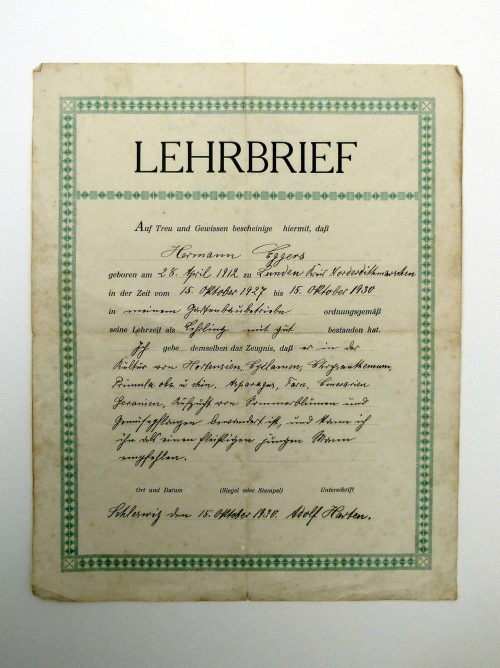 LEHRBRIEF
Auf Treu und Gewissen bescheinige hiermit, daß
Hermann Eggers
geboren am 28. April 1912 zu Lunden Kreis Norderdithmarschen
in der Zeit vom 15. Oktober 1927 bis 15. Oktober 1930
in meinem Gartenbaubetriebe ordnungsgemäß
seine Lehrzeit als Lehrling mit gut bestanden hat.
Ich gebe demselben das Zeugnis, daß er in der
Kultur von Hortensien, Cyclamen, Chrysanthemum,
Primula obc. u. chin. Asparagus, Farn, Cinerarien
Geranien, Aufzucht von Sommerblumen und
Gemüsepflanzen bewandert ist, und kann ich
ihn als einen fleißigen jungen Mann
empfehlen.
Ort und Datum (Siegel oder Stempel) Unterschrift
Schleswig den 15. Oktober 1930. Adolf Harten.